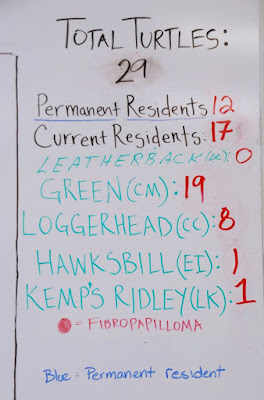 TOTAL TURTLES:
29
Permanent Residents 12
Current Residents: 17
LEATHERBACK(DC): 0
GREEN(CM): 19
LOGGERHEAD(CC): 8
HAWKSBILL(EI): 1
KEMP'S RIDLEY(LK): 1
= FIBROPAPILLOMA
Blue = Permanent resident